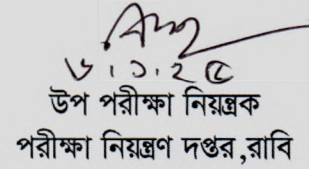 ৬.১.২৫
উপ পরীক্ষা নিয়ন্ত্রক
পরীক্ষা নিয়ন্ত্রণ দপ্তর,রাবি